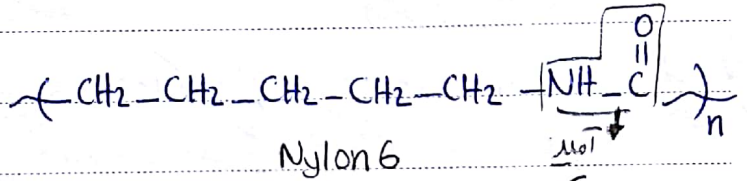 O
||
(CH₂–CH₂–CH₂–CH₂–CH₂–NH–C)n
Nylon 6